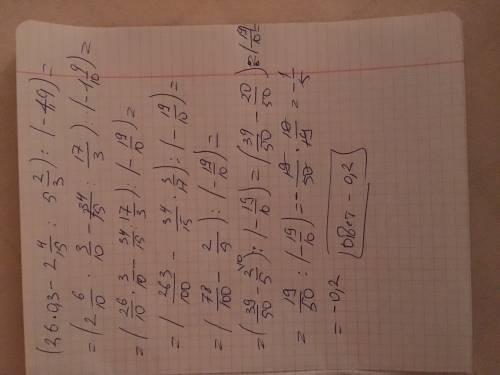 (2,6·0,3 - 2 4/15 : 5 2/3) : (-1,9) =
= (2 6/10 · 3/10 - 34/15 : 17/3) : (-1 9/10) =
= (26/10 · 3/10 - 34/15 : 17/3) : (-19/10) =
= (26·3/100 - 34/15 · 3/17) : (-19/10) =
= (78/100 - 2/5) : (-19/10) =
= (39/50 - 2/5) : (-19/10) = (39/50 - 20/50) : (-19/10)
= 19/50 : (-19/10) = - 19/50 · 10/19 = - 1/5
= -0,2
Ответ -0,2